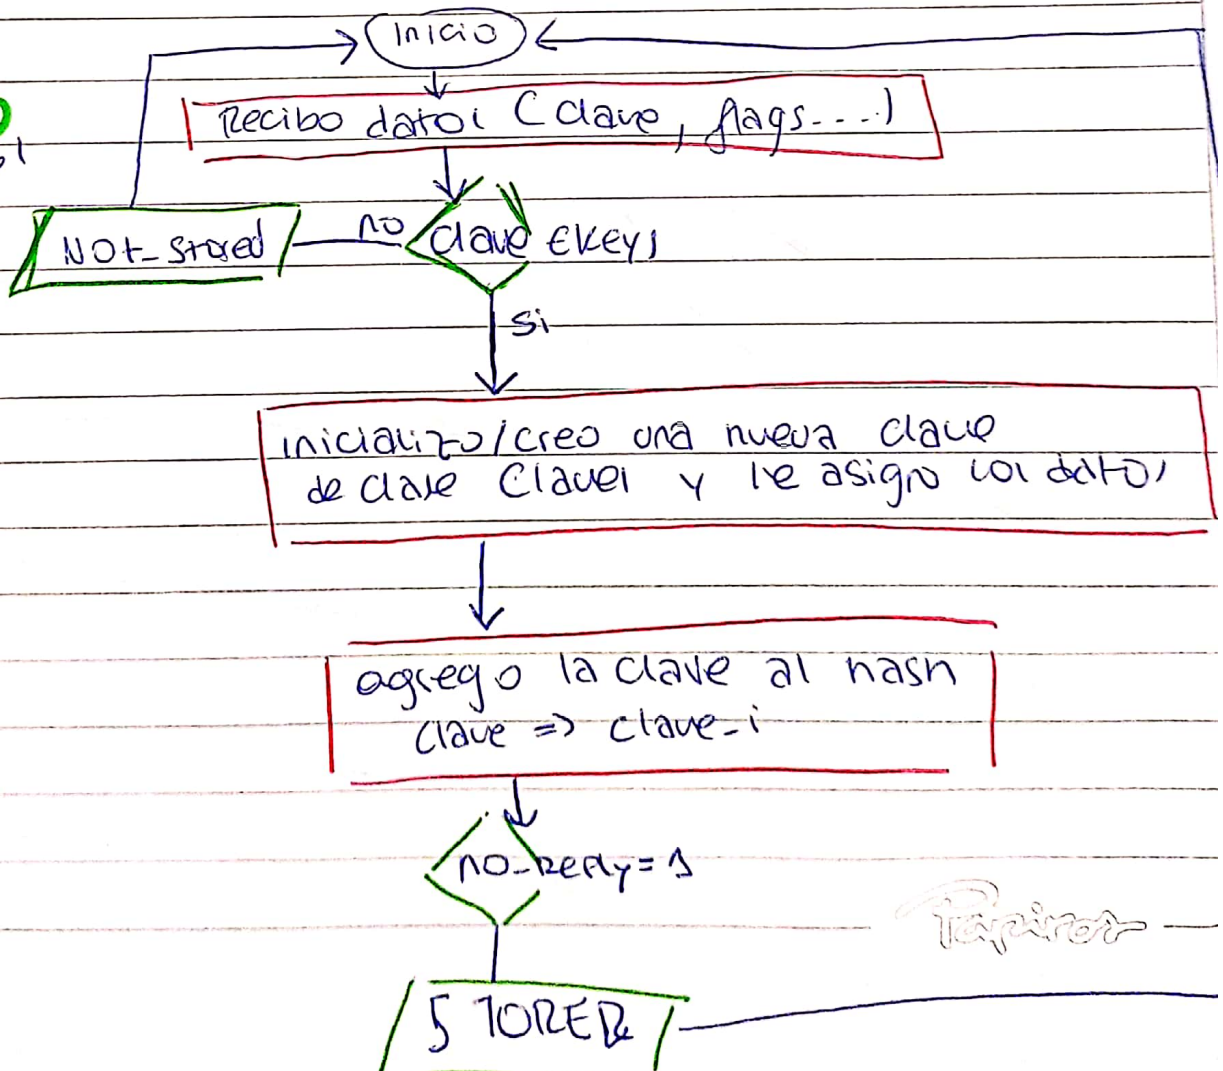 Inicio
Recibo datos (clave, flags....)
Not_stored
no
clave ∈ keys
si
inicializo/creo una nueva clave
de clase Claves y le asigno los datos
agrego la clave al hash
clave => clave_i
no_reply=1
Papiros
STORER